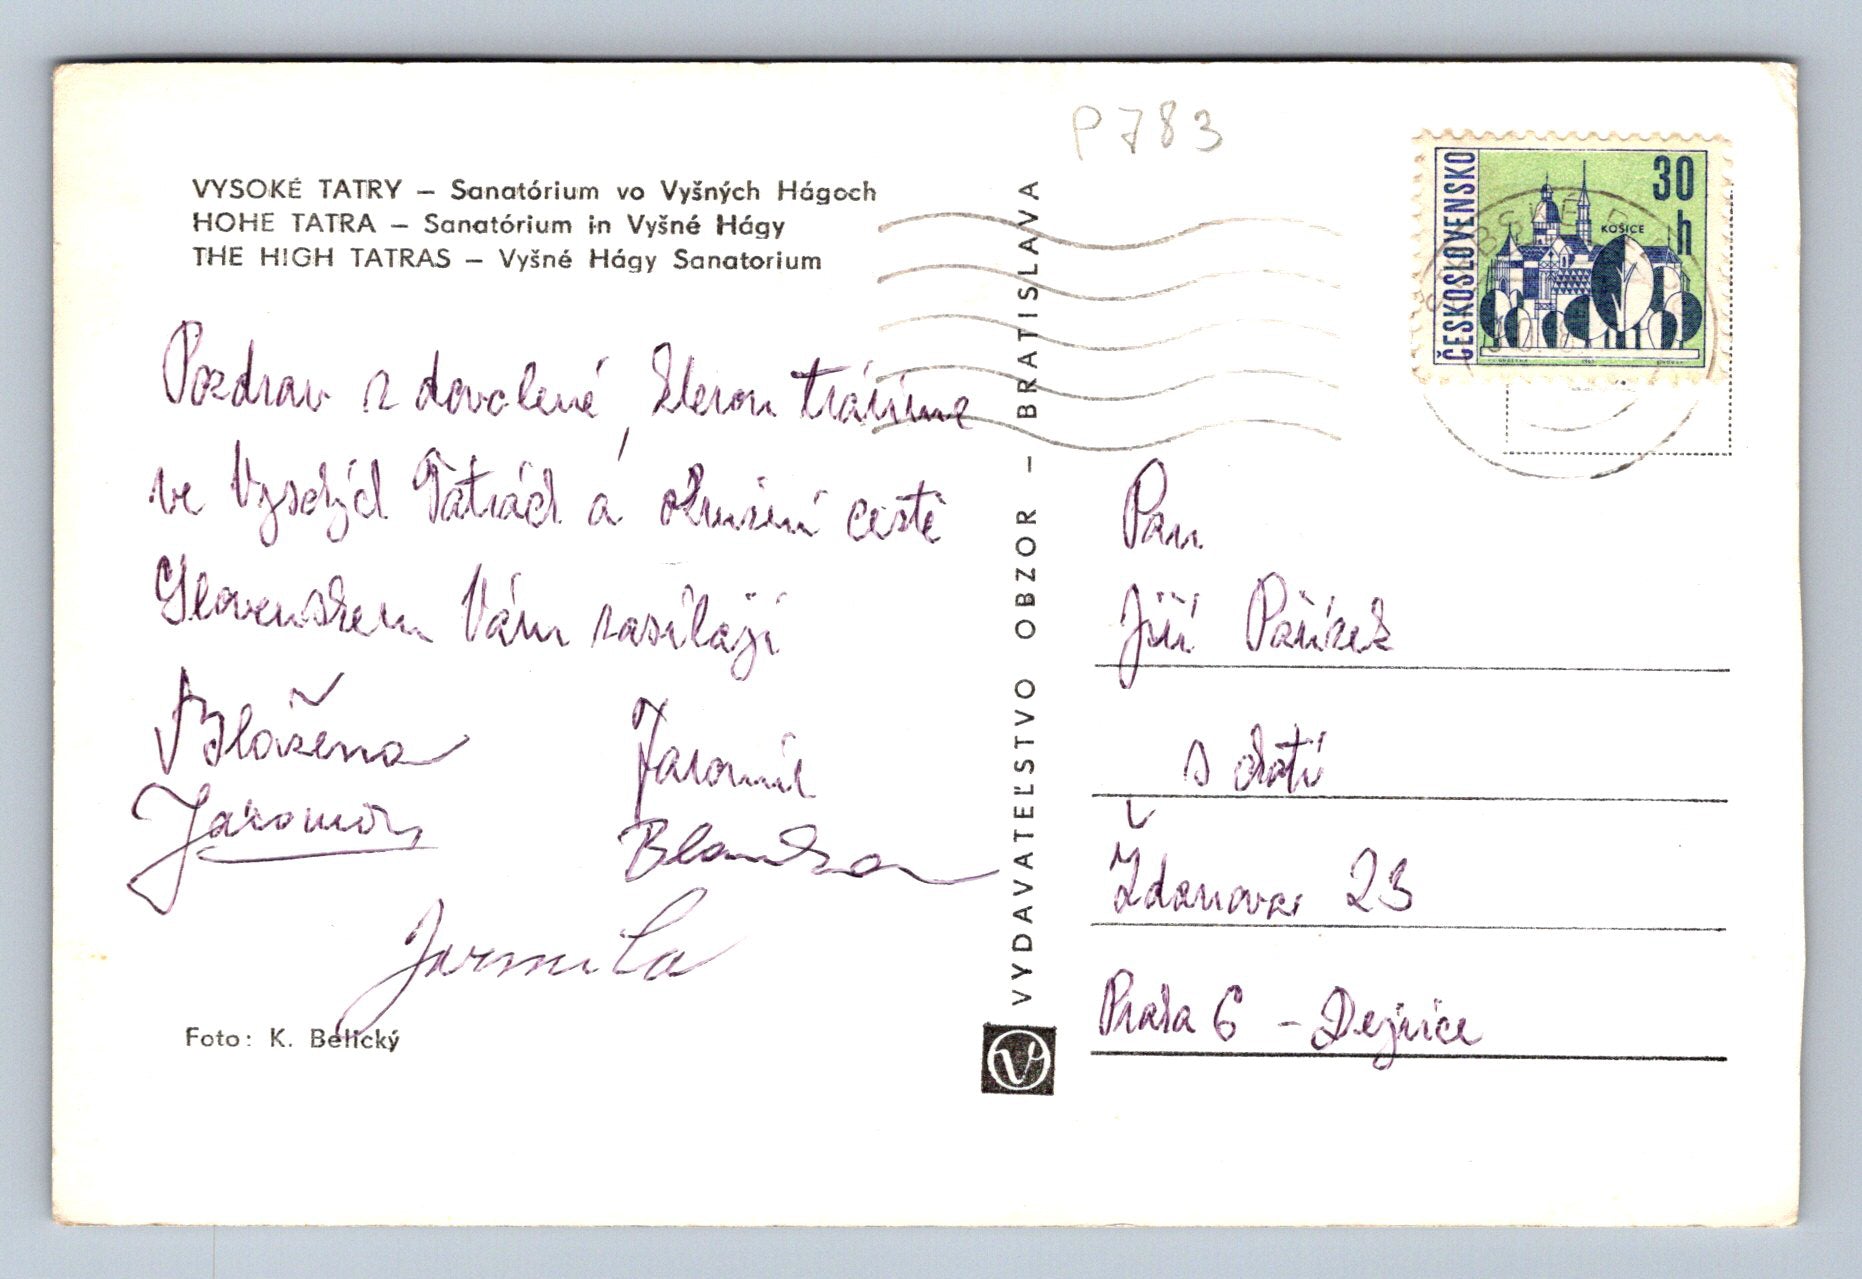 P 783
VYSOKÉ TATRY – Sanatórium vo Vyšných Hágoch
HOHE TATRA – Sanatórium in Vyšné Hágy
THE HIGH TATRAS – Vyšné Hágy Sanatorium
Pozdrav z dovolené, kterou trávíme
ve Vysokých Tatrách a okružní cestě
Slovenskem Vám zasílají
Blažena
Jaromír
Jaromil
Blanka
Jarmila
Foto: K. Belický
VYDAVATEĽSTVO OBZOR – BRATISLAVA
ČESKOSLOVENSKO
30 h
KOŠICE
Pan
Jiří Pařízek
s chotí
Ždanova 23
Praha 6 – Dejvice